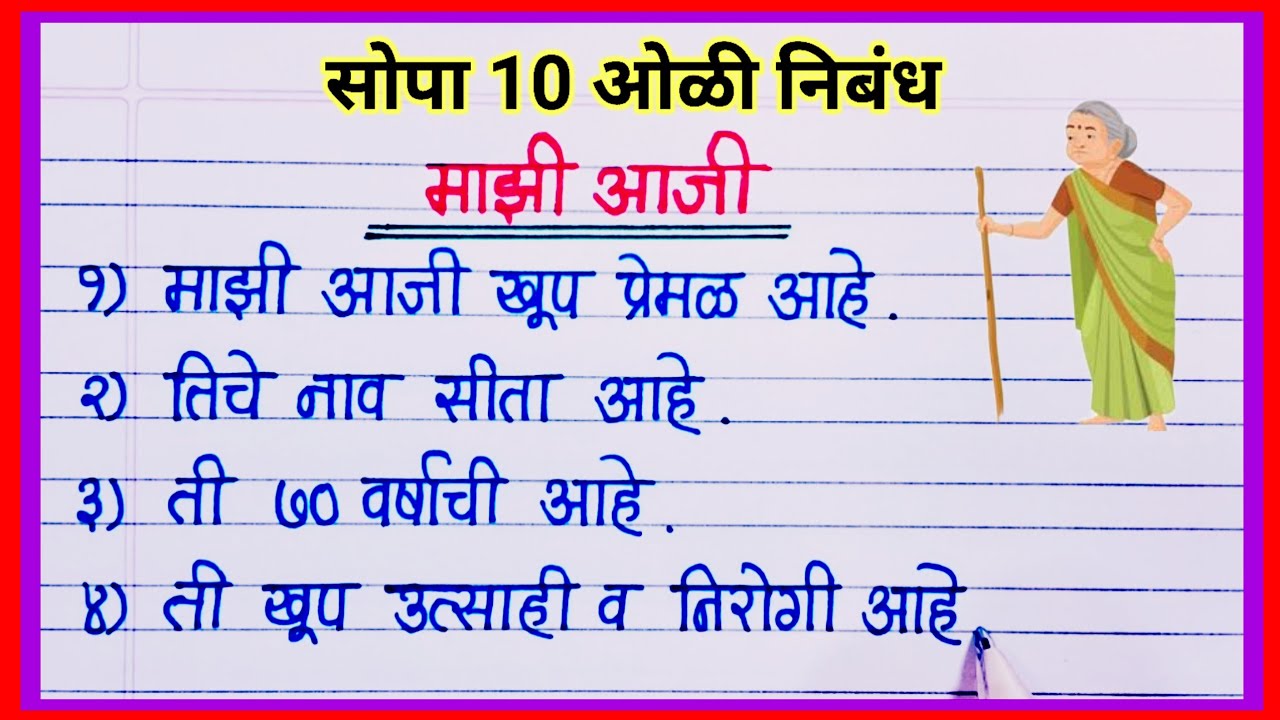 सोपा 10 ओळी निबंध
माझी आजी
१) माझी आजी खूप प्रेमळ आहे.
२) तिचे नाव सीता आहे.
३) ती ७० वर्षाची आहे.
४) ती खूप उत्साही व निरोगी आहे.